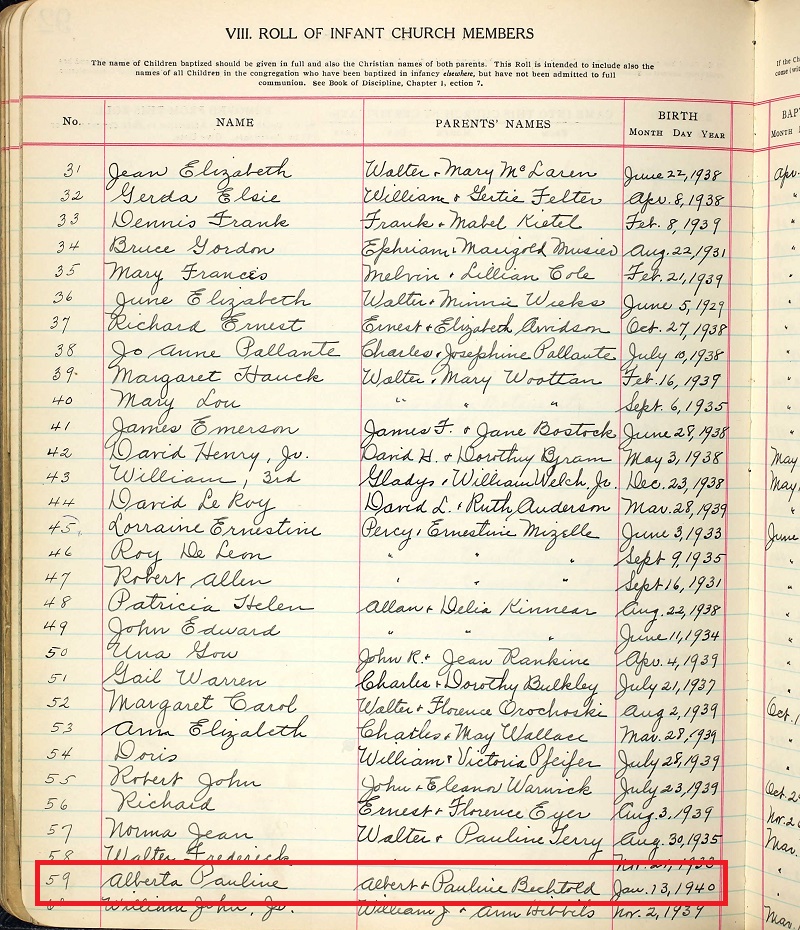 VIII. ROLL OF INFANT CHURCH MEMBERS
The name of Children baptized should be given in full and also the Christian names of both parents. This Roll is intended to include also the
names of all Children in the congregation who have been baptized in infancy elsewhere, but have not been admitted to full
communion. See Book of Discipline, Chapter I, ection 7.
If the Ch
come (wit
No. NAME PARENTS' NAMES BIRTH BAP
MONTH DAY YEAR MONTH
31 Jean Elizabeth Walter + Mary McLaren June 22, 1938 Apr.
32 Gerda Elsie William + Gertie Felter Apr. 8, 1938 "
33 Dennis Frank Frank + Mabel Kietel Feb. 8, 1939 "
34 Bruce Gordon Ephriam + Marigold Musier Aug. 22, 1931 "
35 Mary Frances Melvin + Lillian Cole Feb. 21, 1939 "
36 June Elizabeth Walter + Minnie Weeks June 5, 1929 "
37 Richard Ernest Ernest + Elizabeth Avidson Oct. 27, 1938 "
38 Jo Anne Pallante Charles + Josephine Pallante July 10, 1938 "
39. Margaret Hauck Walter + Mary Woottan Feb. 16, 1939 "
40 Mary Lou " " " Sept. 6, 1935 "
41 James Emerson James F. + Jane Bostock June 28, 1938 "
42 David Henry, Jr. David H. + Dorothy Byram May 3, 1938 May
43 William, 3rd Gladys + William Welch, Jr. Dec. 23, 1938 May
44 David Le Roy David L. + Ruth Anderson Mar. 28, 1939 "
45. Lorraine Ernestine Percy + Ernestine Mizelle June 3, 1933 June
46 Roy De Leon " " " Sept 9, 1935 "
47 Robert Allen " " " Sept 16, 1931 "
48 Patricia Helen Allan + Delia Kinnear Aug. 22, 1938 "
49 John Edward " " " June 11, 1934 "
50 Una Gow John R. + Jean Rankine Apr. 4, 1939 "
51 Gail Warren Charles + Dorothy Bulkley July 21, 1937 "
52 Margaret Carol Walter + Florence Orochoski Aug 2, 1939 Oct. 1
53 Ann Elizabeth Charles + May Wallace Mar. 28, 1939 "
54 Doris William + Victoria Pfeifer July 28, 1939 "
55 Robert John John + Eleanor Warwick July 23, 1939 Oct. 2
56 Richard Ernest + Florence Eyer Aug. 3, 1939 Nov. 2
57 Norma Jean Walter + Pauline Terry Aug. 30, 1935 Mar.
58 Walter Frederick
59 Alberta Pauline Albert + Pauline Bechtold Jan. 13, 1940 "
William John, Jr. William J + Ann Hibbils Nov. 2, 1939 Mar.